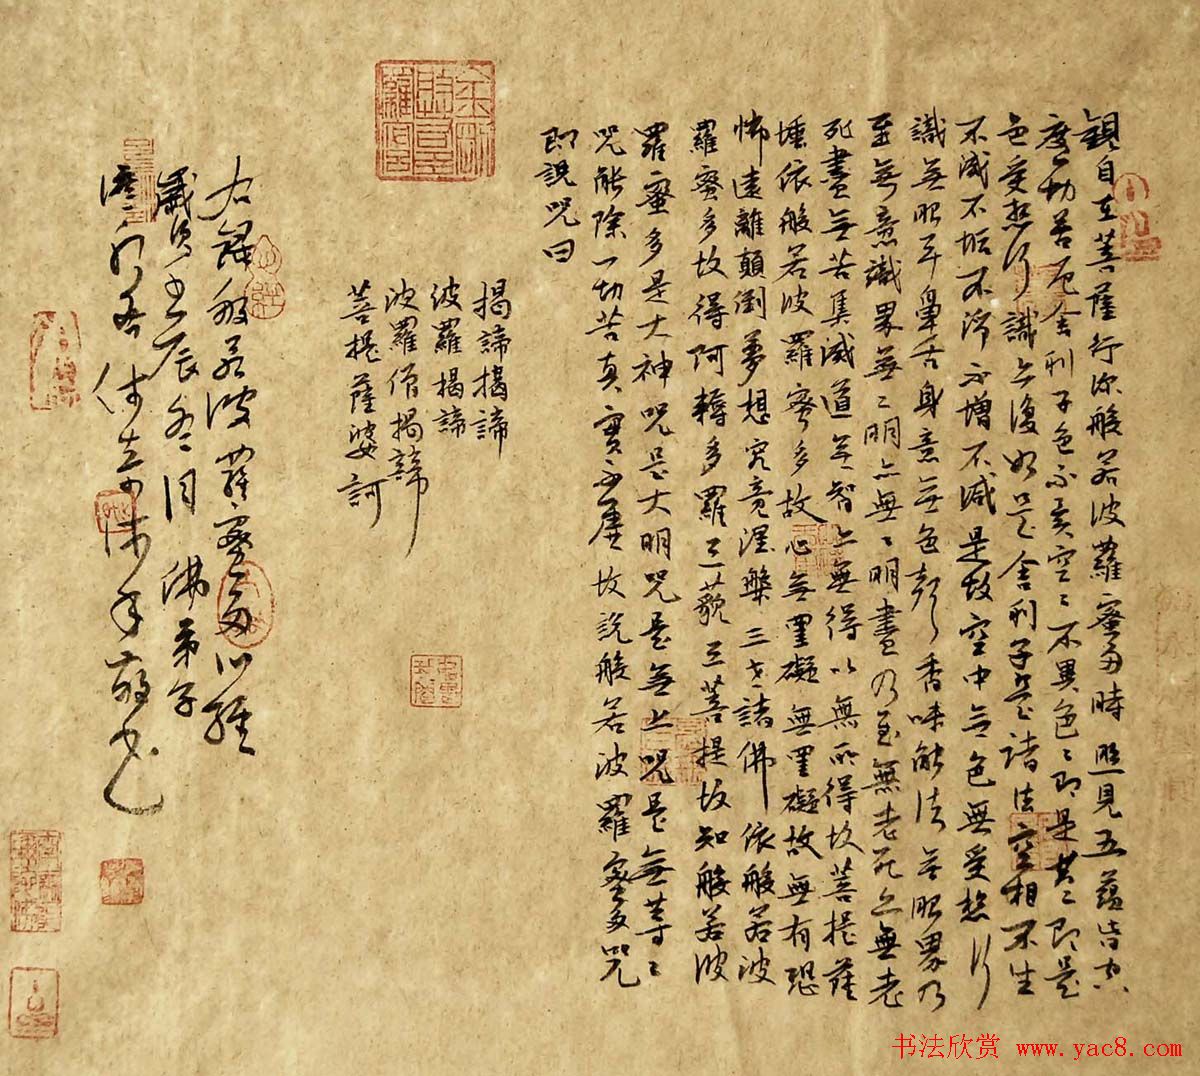 觀自在菩薩行深般若波羅蜜多時照見五蘊皆空
度一切苦厄舍利子色不異空〻不異色〻即是空〻即是
色受想行識亦復如是舍利子是諸法空相不生
不滅不垢不淨不增不減是故空中無色無受想行
識無眼耳鼻舌身意無色聲香味觸法無眼界乃
至無意識界無〻明亦無〻明盡乃至無老死亦無老
死盡無苦集滅道無智亦無得以無所得故菩提薩
埵依般若波羅蜜多故心無罣礙無罣礙故無有恐
怖遠離顛倒夢想究竟涅槃三世諸佛依般若波
羅蜜多故得阿耨多羅三藐三菩提故知般若波
羅蜜多是大神咒是大明咒是無上咒是無等〻
咒能除一切苦真實不虛故說般若波羅蜜多咒
即說咒曰
揭諦揭諦
波羅揭諦
波羅僧揭諦
菩提薩婆訶
右錄般若波羅蜜多心經
辰冬月 佛弟子
书法欣赏 www.yac8.com